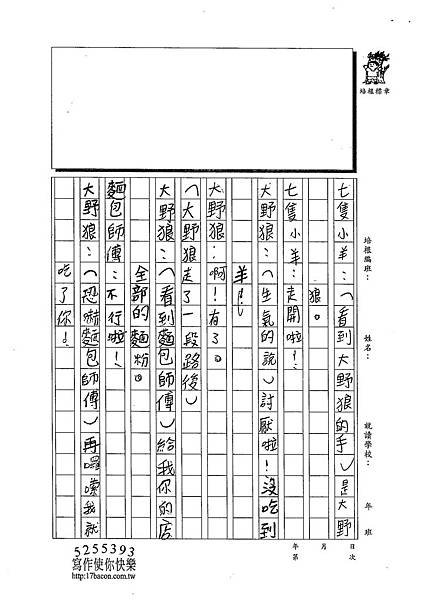 培根標章
培根編班：
姓名：
就讀學校：
年 班
年 月 日
第 次
七隻小羊：（看到大野狼的手）是大野
狼。
七隻小羊：走開啦！
大野狼：（生氣的說）討厭啦！沒吃到
羊！
大野狼：啊！有了。
（大野狼走了一段路後）
大野狼：（看到麵包師傅）給我你的店
全部的麵粉。
麵包師傅：不行啦！
大野狼：（恐嚇麵包師傅）再囉嗦我就
吃了你！
5255393
寫作使你快樂
http://17bacon.com.tw